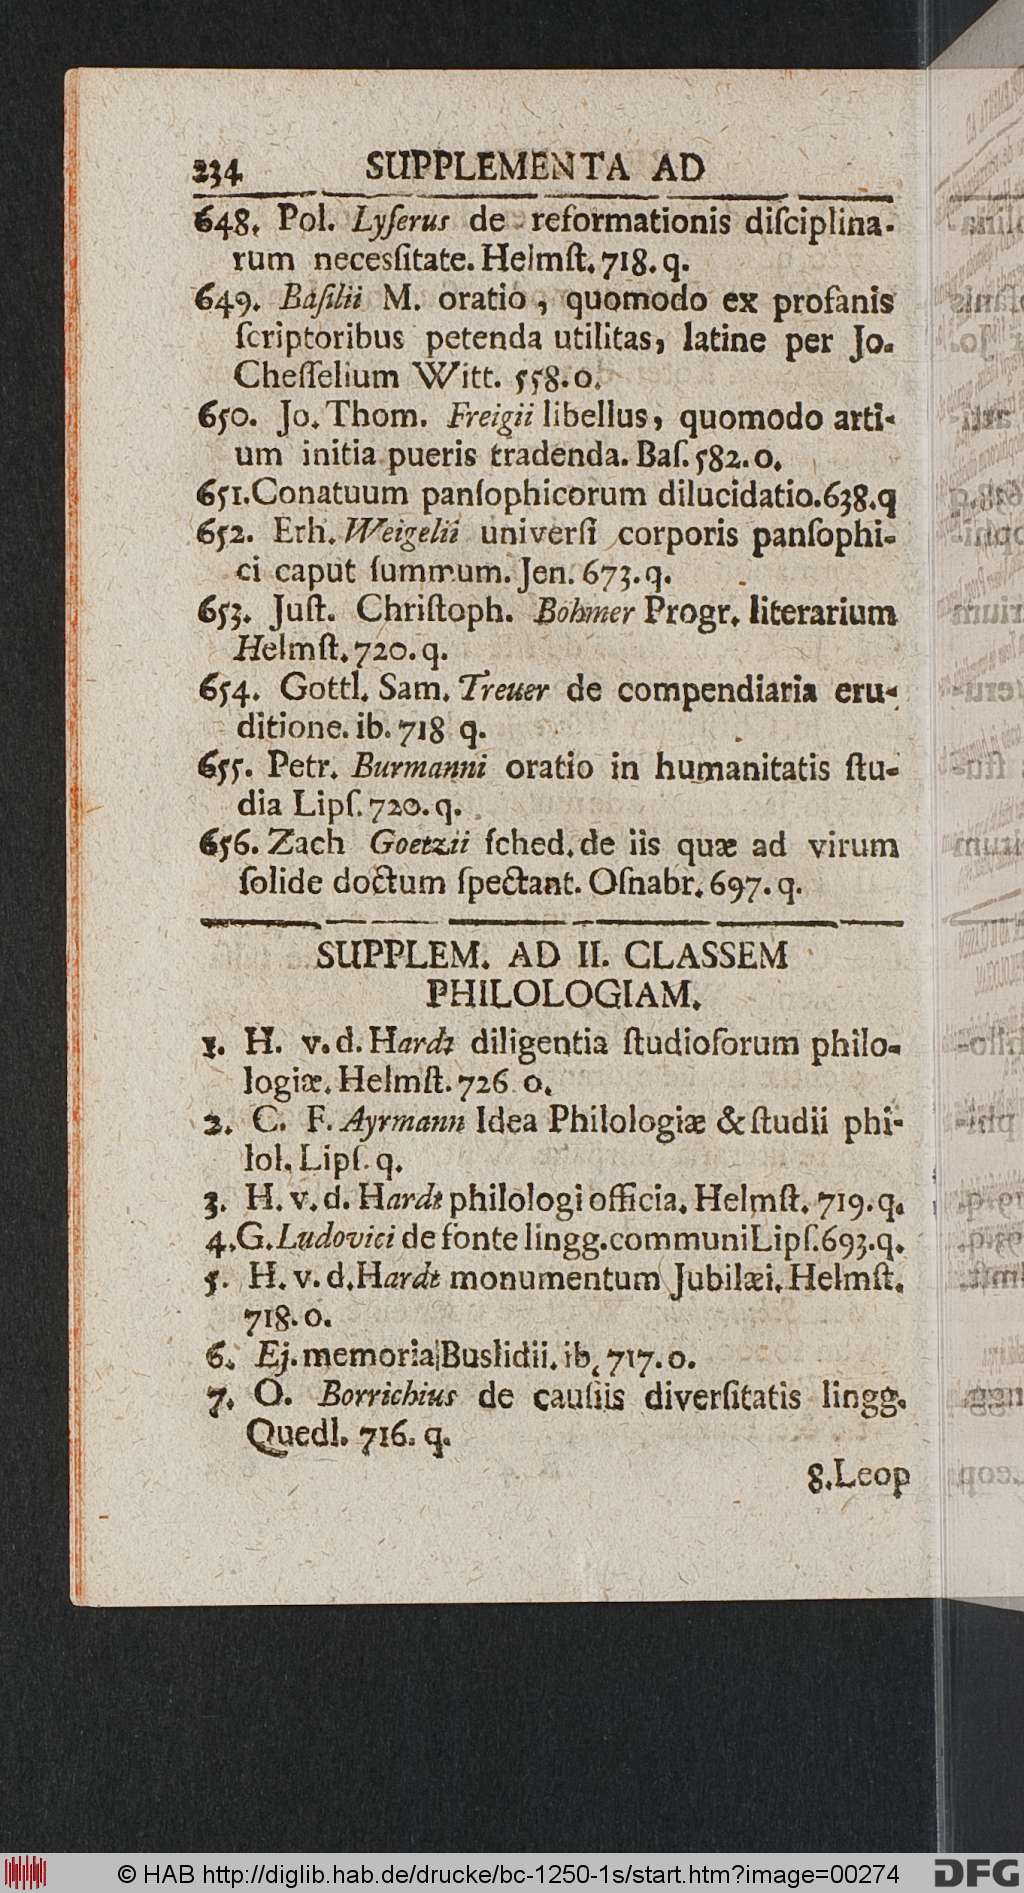 234 SUPPLEMENTA AD
648. Pol. Lyſerus de reformationis diſciplina-
rum necesſitate. Helmſt. 718. q.
649. Baſilii M. oratio, quomodo ex profanis
ſcriptoribus petenda utilitas, latine per Jo.
Cheſſelium Witt. 558. o.
650. Jo. Thom. Freigii libellus, quomodo arti-
um initia pueris tradenda. Baſ. 582. o.
651. Conatuum panſophicorum dilucidatio. 638. q
652. Erh. Weigelii univerſi corporis panſophi-
ci caput ſummum. Jen. 673. q.
653. Juſt. Chriſtoph. Böhmer Progr. literarium
Helmſt. 720. q.
654. Gottl. Sam. Treuer de compendiaria eru-
ditione. ib. 718 q.
655. Petr. Burmanni oratio in humanitatis ſtu-
dia Lipſ. 720. q.
656. Zach Goetzii ſched. de iis quæ ad virum
ſolide doctum ſpectant. Oſnabr. 697. q.
SUPPLEM. AD II. CLASSEM
PHILOLOGIAM.
1. H. v. d. Hardt diligentia ſtudioſorum philo-
logiæ. Helmſt. 726. o.
2. C. F. Ayrmann Idea Philologiæ & ſtudii phi-
lol. Lipſ. q.
3. H. v. d. Hardt philologi officia. Helmſt. 719. q.
4. G. Ludovici de fonte lingg. communi Lipſ. 693. q.
5. H. v. d. Hardt monumentum Jubilæi. Helmſt.
718. o.
6. Ej. memoria Buslidii. ib. 717. o.
7. O. Borrichius de cauſiis diverſitatis lingg.
Quedl. 716. q.
8. Leop
© HAB http://diglib.hab.de/drucke/bc-1250-1s/start.htm?image=00274
DFG